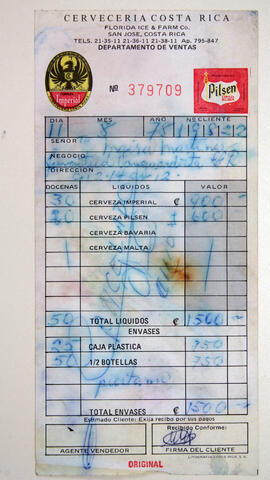 CERVECERIA COSTA RICA
FLORIDA ICE & FARM Co.
SAN JOSE, COSTA RICA
TELS. 21-35-11 21-36-11 21-38-11 Ap. 795-847
DEPARTAMENTO DE VENTAS
Imperial
Nº 379709
Pilsen
DIA MES Nº CLIENTE
11 8 78
SEÑOR
NEGOCIO
DIRECCION
DOCENAS LIQUIDOS VALOR
30 CERVEZA IMPERIAL ₡ 900
20 CERVEZA PILSEN 600
CERVEZA BAVARIA
CERVEZA MALTA
50 TOTAL LIQUIDOS ₡ 1500
ENVASES
25 CAJA PLASTICA 750
50 1/2 BOTELLAS 750
TOTAL ENVASES ₡ 1500
Estimado Cliente: Exija recibo por sus pagos
Recibido Conforme:
AGENTE VENDEDOR FIRMA DEL CLIENTE
ORIGINAL